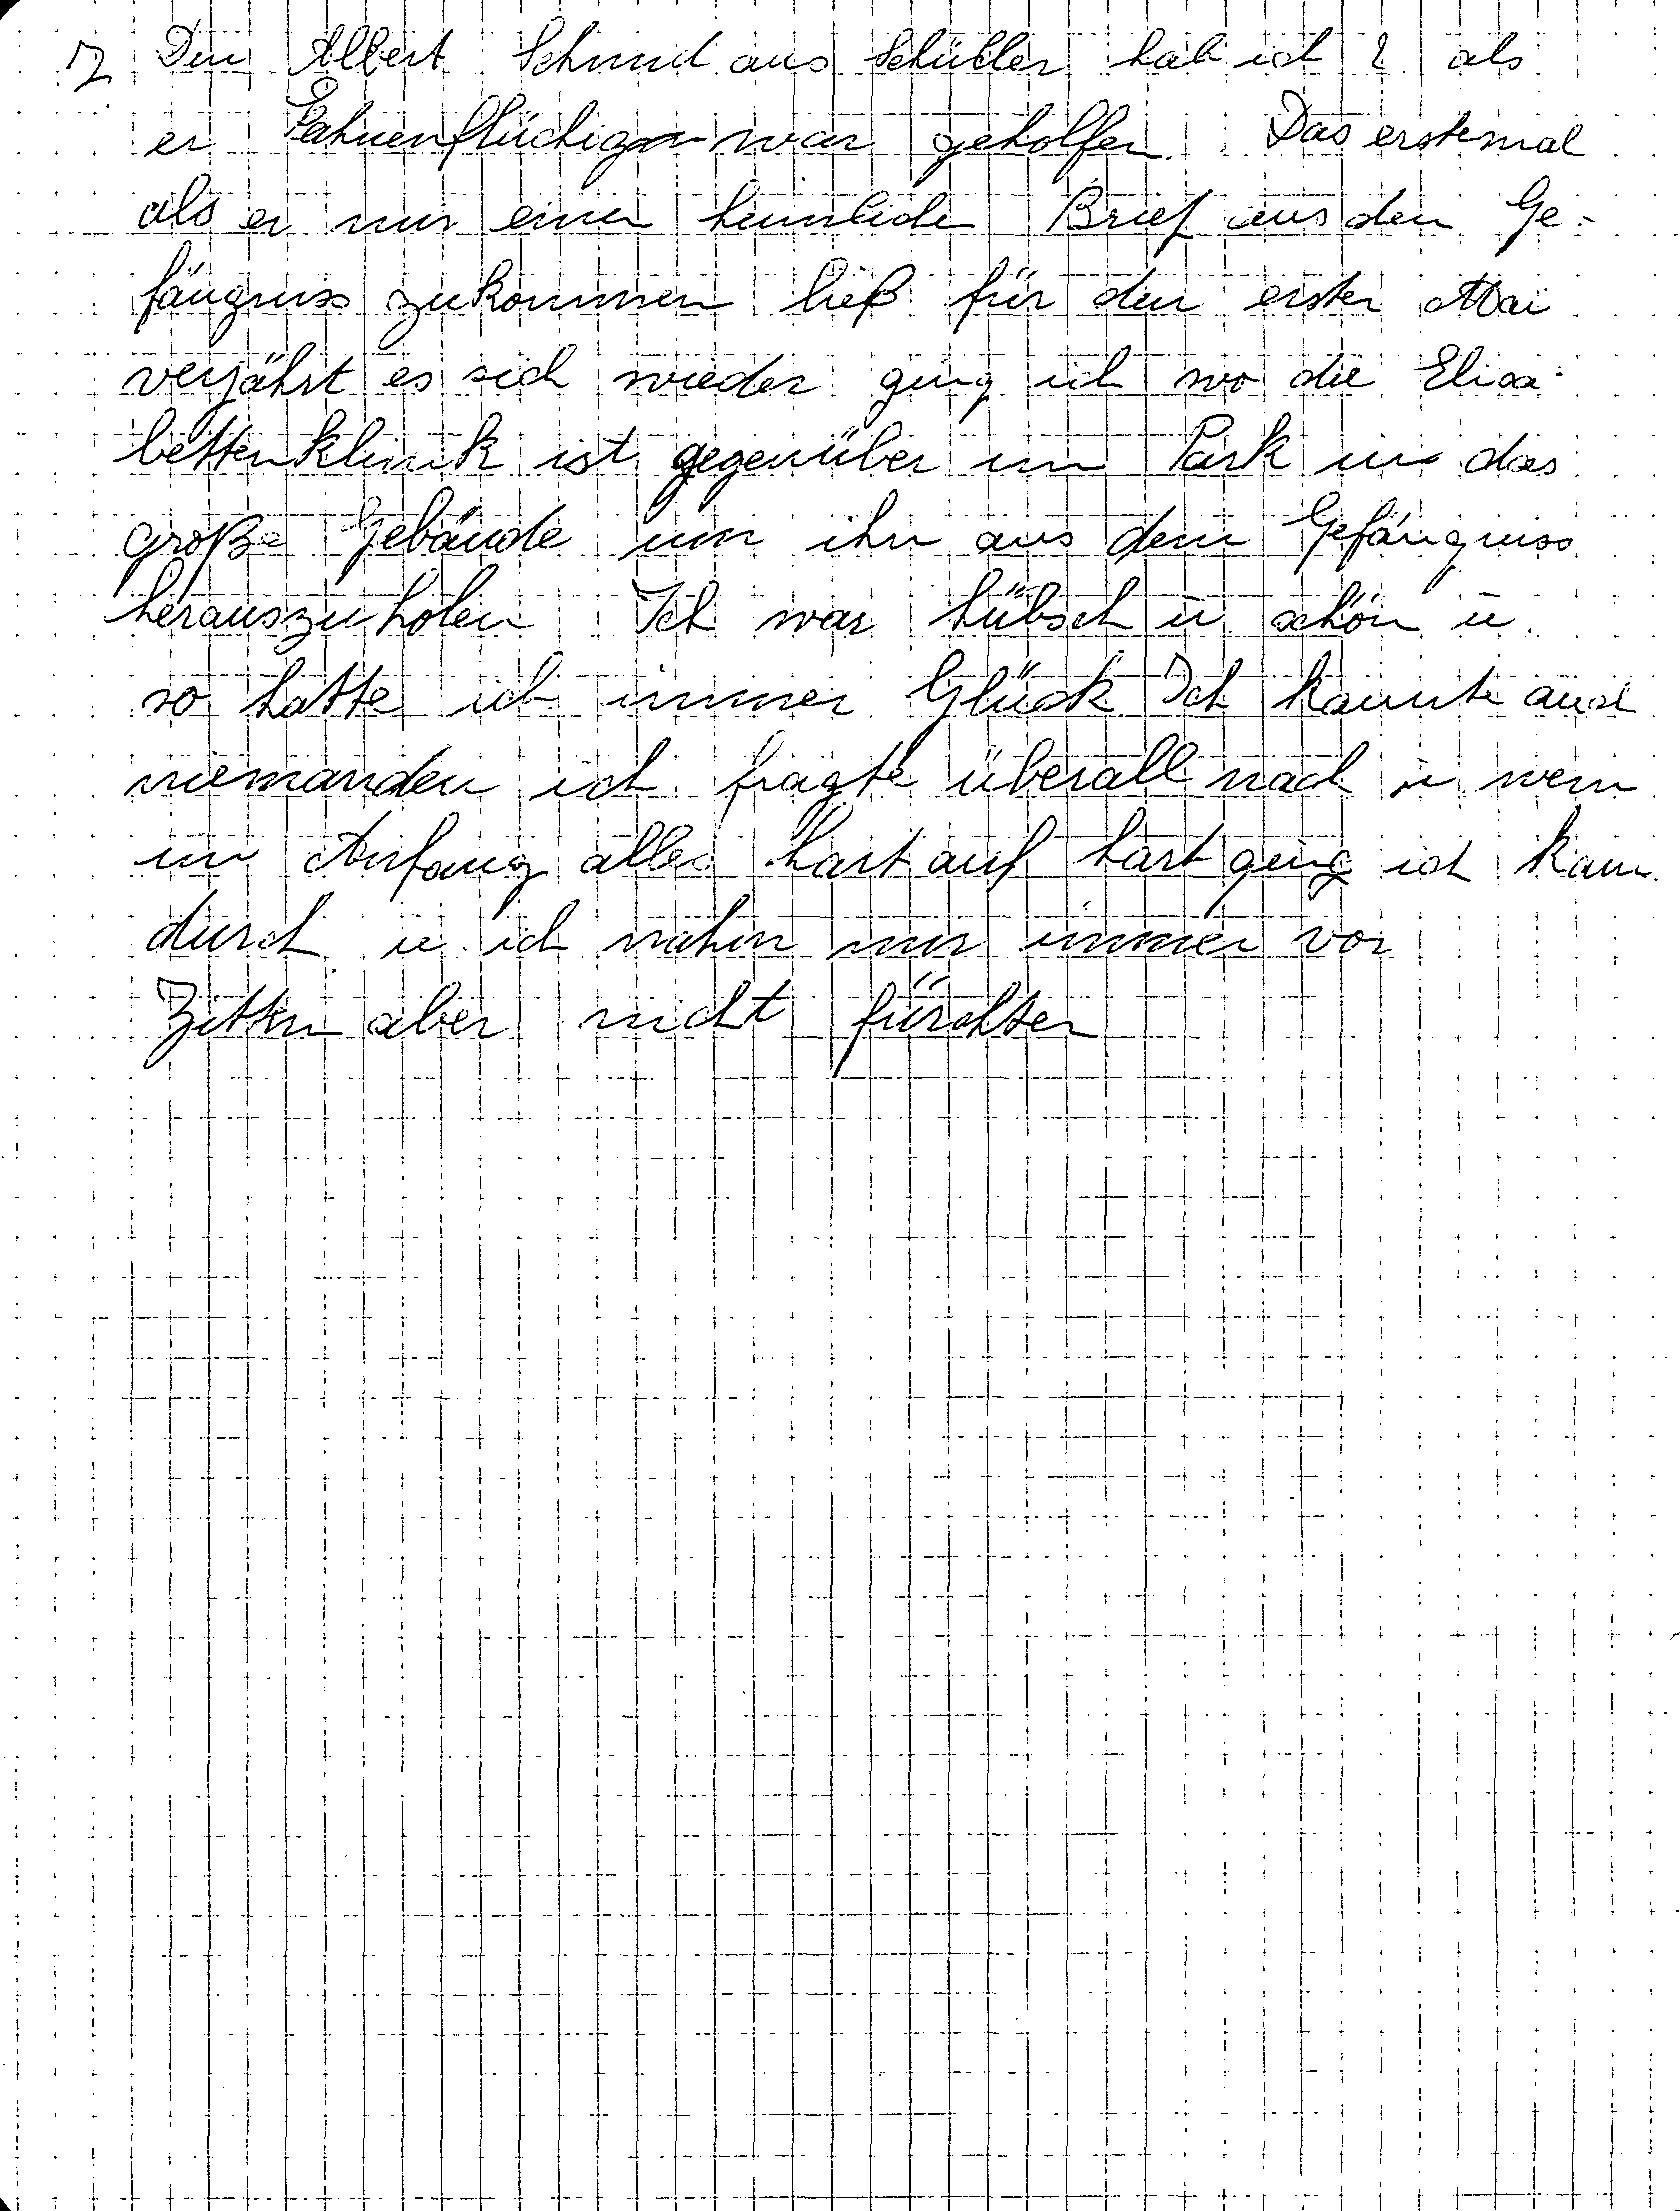 7 Den Albert Schmid aus Schüller hab ich 2 als
er Fahnenflüchiger war geholfen. Das erstemal
als er mir einen heimliche Brief aus den Ge-
fängniss zukommen ließ für den ersten Mai
verjährt es sich wieder ging ich wo die Elisa-
bettenklinik ist gegenüber im Park in das
große Gebäude um ihn aus dem Gefängniss
herauszuholen Ich war hübsch u schön u
so hatte ich immer Glück Ich kannte auch
niemanden ich fragte überall nach u wenn
im Anfang alles hart auf hart ging ich kam
durch u ich nahm mir immer vor
Zittern aber nicht fürchten